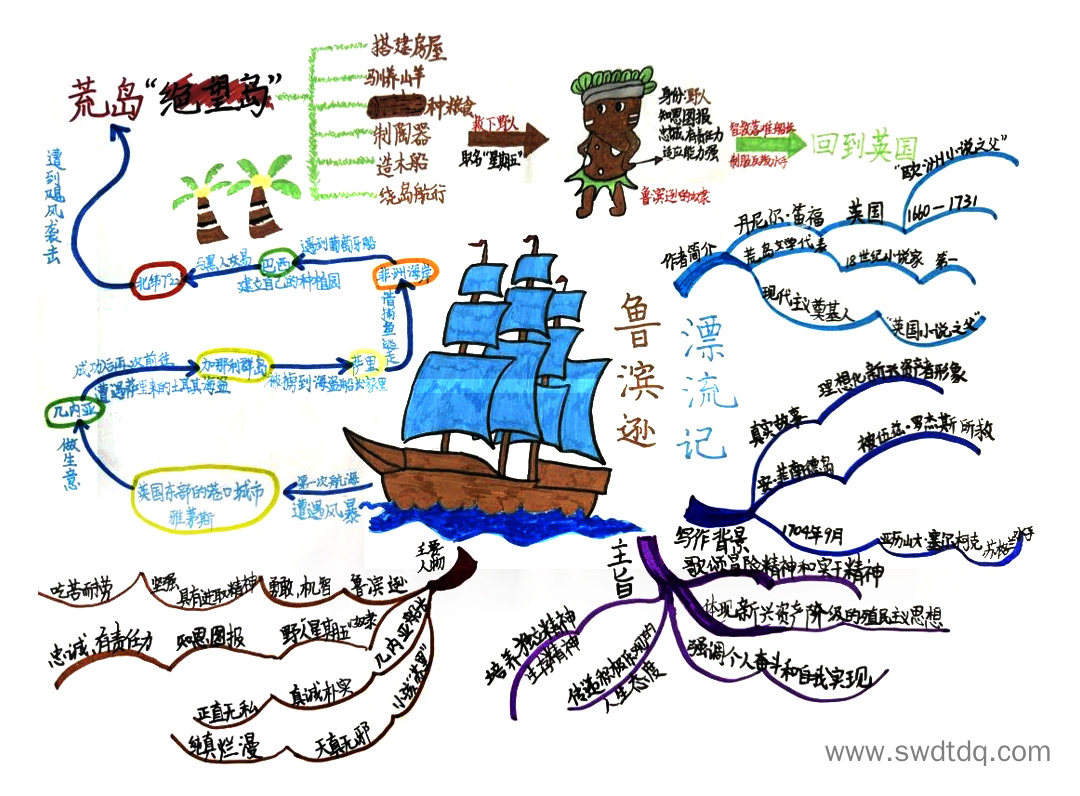 荒岛“绝望岛”
搭建房屋
驯养山羊
种粮食
制陶器
造木船
绕岛航行
救下野人
取名“星期五”
身份:野人
知恩图报
忠诚,有责任力
适应能力强
鲁滨逊的奴隶
制服反叛水手
回到英国
遭到飓风袭击
北纬7°22
与黑人交易
巴西
建立自己的种植园
遇到葡萄牙船
非洲海岸
借捕鱼逃走
萨里
被掳到海盗船长家里
加那利群岛
成功后再次前往
遭遇萨里来的土耳其海盗
几内亚
做生意
英国东部的港口城市
雅茅斯
第一次航海
遭遇风暴
鲁滨逊
漂流记
作者简介
丹尼尔·笛福
英国
1660—1731
“欧洲小说之父”
荒岛文学代表
18世纪小说家
第一
现代主义奠基人
“英国小说之父”
写作背景
真实故事
理想化新兴资产者形象
被伍兹·罗杰斯所救
1704年9月
亚历山大·塞尔柯克
苏格兰水手
主旨
歌颂冒险精神和实干精神
体现新兴资产阶级的殖民主义思想
强调个人奋斗和自我实现
传递积极乐观的
人生态度
培养独立精神
生存精神
主要
人物
鲁滨逊
勇敢,机智
具有进取精神
坚强
吃苦耐劳
野人星期五
知恩图报
忠诚,有责任力
几内亚船长
真诚朴实
正直无私
天真无邪
纯真烂漫
www.swdtdq.com